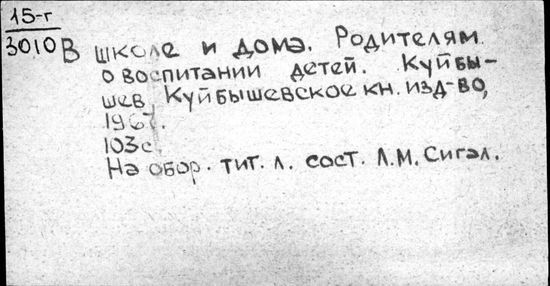 15-г
3010 В школе и дома. Родителям
о воспитании детей. Куйбы-
шев, Куйбышевское кн. изд-во,
1967.
103с.
На обор. тит. л. сост. Л.М. Сигал.